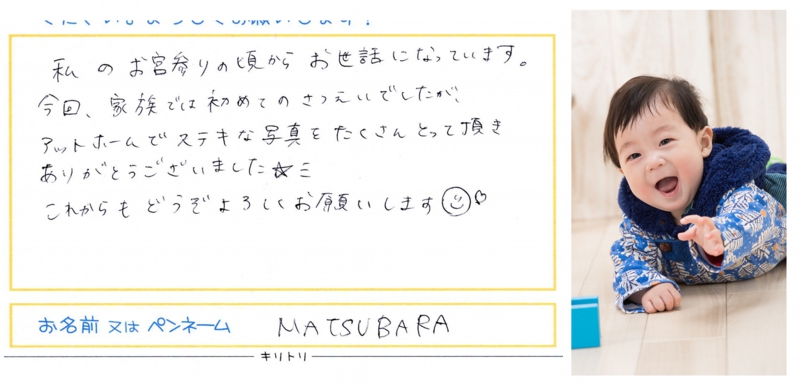 私のお宮参りの頃からお世話になっています。
今回、家族では初めてのさつえいでしたが、
アットホームでステキな写真をたくさんとって頂き
ありがとうございました☆ミ
これからもどうぞよろしくお願いします☺♡
お名前 又は ペンネーム MATSUBARA
キリトリ